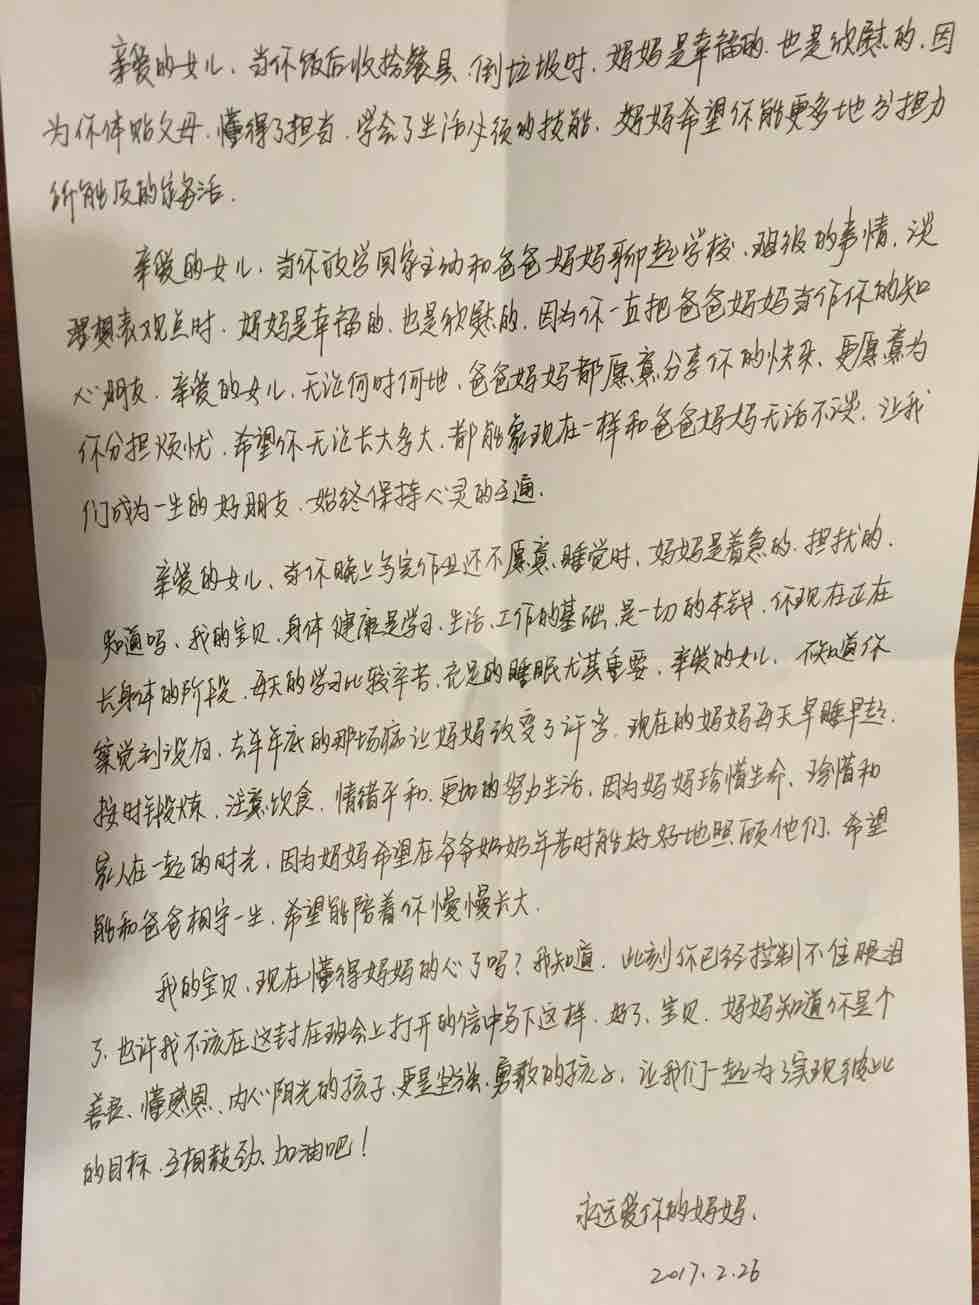 亲爱的女儿、当你饭后收拾餐具、倒垃圾时、妈妈是幸福的、也是欣慰的、因
为你体贴父母、懂得了担当、学会了生活必须的技能、妈妈希望你能更多地分担力
所能及的家务活.
亲爱的女儿、当你放学回家主动和爸爸妈妈聊起学校、班级的事情、谈
理想表观点时、妈妈是幸福的、也是欣慰的、因为你一直把爸爸妈妈当作你的知
心朋友、亲爱的女儿、无论何时何地、爸爸妈妈都愿意分享你的快乐、更愿意为
你分担烦忧、希望你无论长大多大、都能象现在一样和爸爸妈妈无话不谈、让我
们成为一生的好朋友、始终保持心灵的互通.
亲爱的女儿、当你晚上写完作业还不愿意睡觉时、妈妈是着急的、担扰的、
知道吗、我的宝贝、身体健康是学习、生活、工作的基础、是一切的本钱、你现在正在
长身体的阶段、每天的学习比较辛苦、充足的睡眠尤其重要、亲爱的女儿、不知道你
察觉到没有、去年年底的那场病让妈妈改变了许多、现在的妈妈每天早睡早起、
按时锻炼、注意饮食、情绪平和、更加的努力生活、因为妈妈珍惜生命、珍惜和
家人在一起的时光、因为妈妈希望在爷爷奶奶年老时能好好地照顾他们、希望
能和爸爸相守一生、希望能陪着你慢慢长大.
我的宝贝、现在懂得妈妈的心了吗？我知道、此刻你已经控制不住眼泪
了、也许我不该在这封在班会上打开的信中写下这样、好了、宝贝、妈妈知道你是个
善良、懂感恩、内心阳光的孩子、更是坚强、勇敢的孩子、让我们一起为了实现彼此
的目标、互相鼓劲、加油吧！
永远爱你的妈妈、
2017.2.26